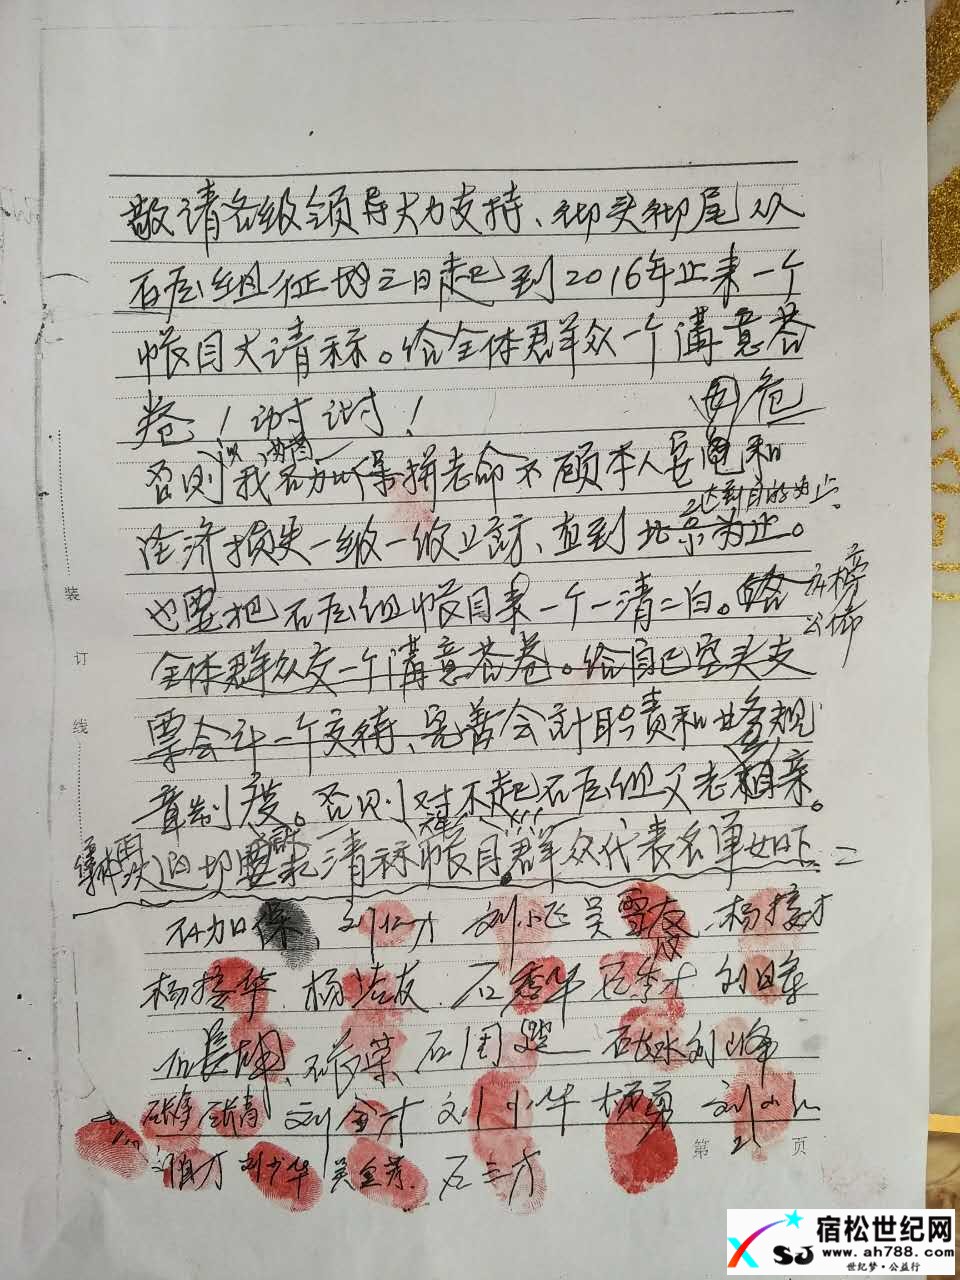 敬请各级领导大力支持、从头彻尾从
石屋组征地之日起到2016年止来一个
帐目大清标。给全体群众一个满意答
卷！讨讨！
否则我石加保拼老命不顾本人安危和
经济损失一级一级上访、直到达到目的为止。
也要把石屋组帐目来一个一清二白。给
张榜公佈
全体群众交一个满意答卷。给自己空头支
票会计一个交待、完善会计职责和
规
章制度。否则对不起石屋组父老相亲。
迫切要求清标帐目群众代表名单如下
石加保 刘仁才 刘小飞 吴雪友 杨接才
杨接华 杨结友 石季华 石季才 刘
石长 石 荣 石 石长水 刘 峰
石长青 刘金才 刘小华 刘小
刘 才 刘少华 吴金 石三才
装
订
线
第 2 页
宿松世纪网
www.ah788.com
世纪梦·公益行